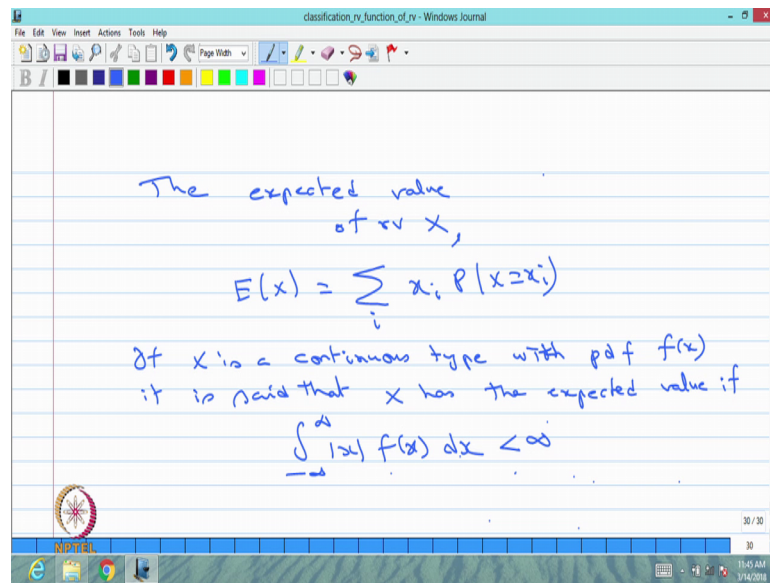 classification_rv_function_of_rv - Windows Journal
File Edit View Insert Actions Tools Help
Page Width
B I
The expected value
of rv X,
E(x) = ∑ x_i P(X=x_i)
i
If X is a continuous type with pdf f(x)
it is said that X has the expected value if
∫_{-∞}^{∞} |x| f(x) dx < ∞
30 / 30
NPTEL
30
11:45 AM
3/14/2018